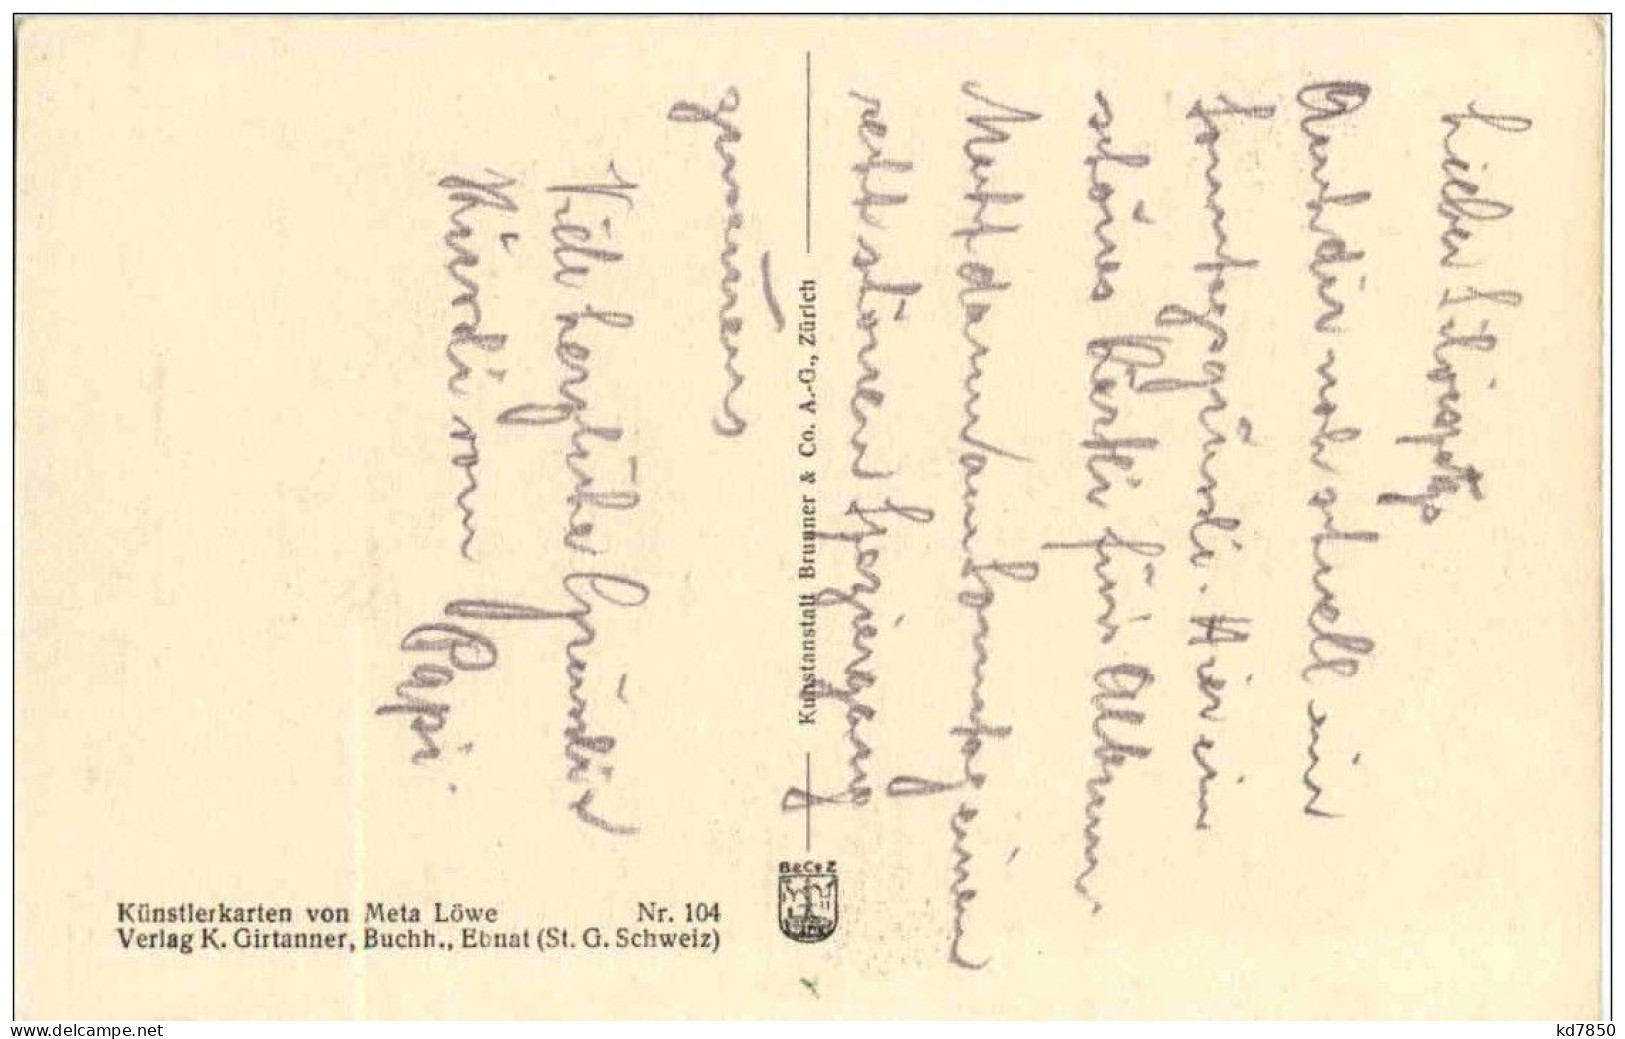 Lieber
Auch dir noch schnell ein
Sonntagsgrüssli. Hier ein
schönes Kärtli für's Album
Macht dann am Sonntag einen
recht schönen Spaziergang
zusammen
Viele herzliche Grüssli &
Küssli vom
Papi.
Kunstanstalt Brunner & Co. A.-G., Zürich
B&CoZ
Künstlerkarten von Meta Löwe Nr. 104
Verlag K. Girtanner, Buchh., Ebnat (St. G. Schweiz)
www.delcampe.net
kd7850